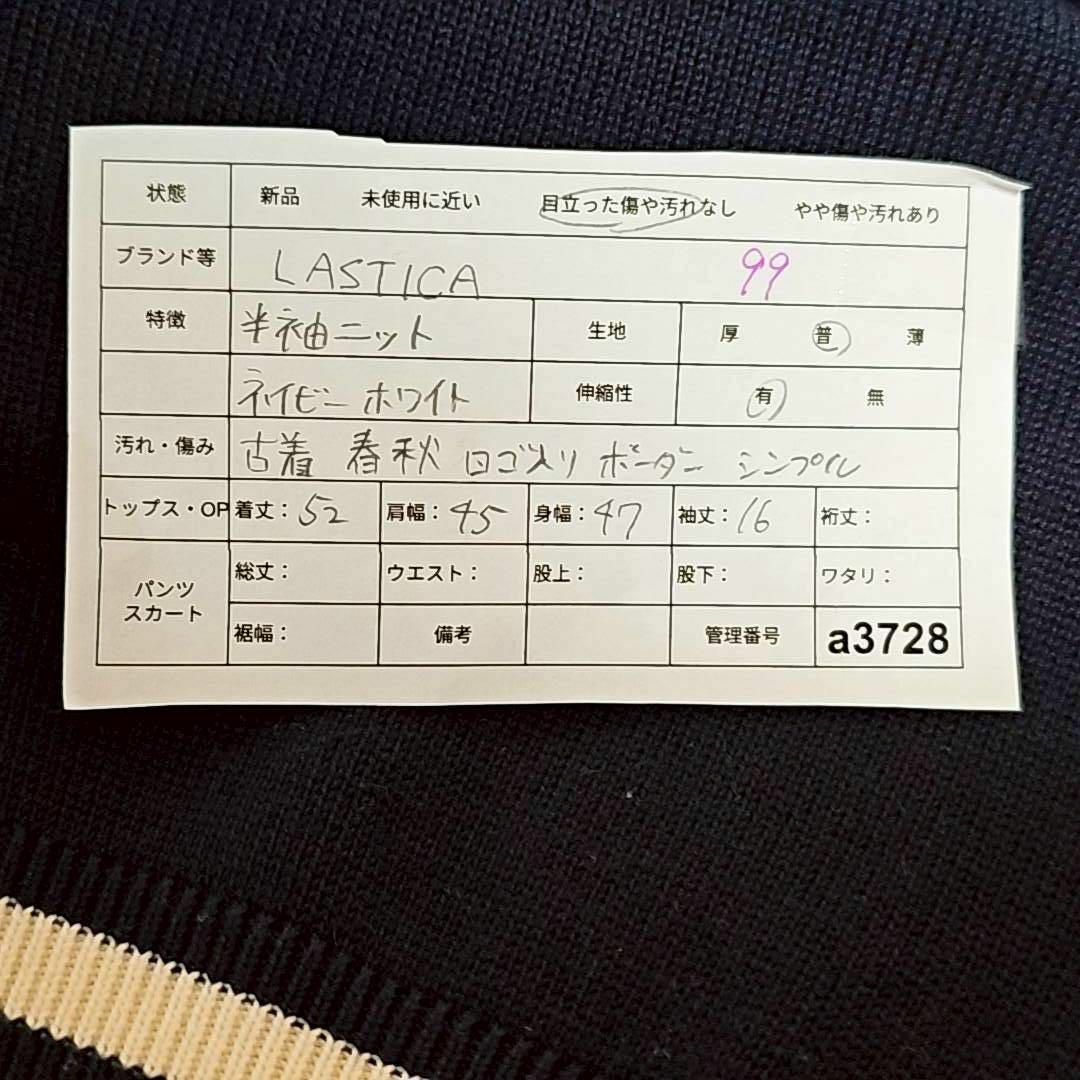 状態 新品 未使用に近い 目立った傷や汚れなし やや傷や汚れあり
ブランド等 LASTICA 99
特徴 半袖ニット 生地 厚 普 薄
ネイビー ホワイト 伸縮性 有 無
汚れ・傷み 古着 春秋 ロゴ入り ボーダー シンプル
トップス・OP 着丈:52 肩幅:45 身幅:47 袖丈:16 裄丈:
パンツ スカート 総丈: ウエスト: 股上: 股下: ワタリ:
裾幅: 備考 管理番号 a3728